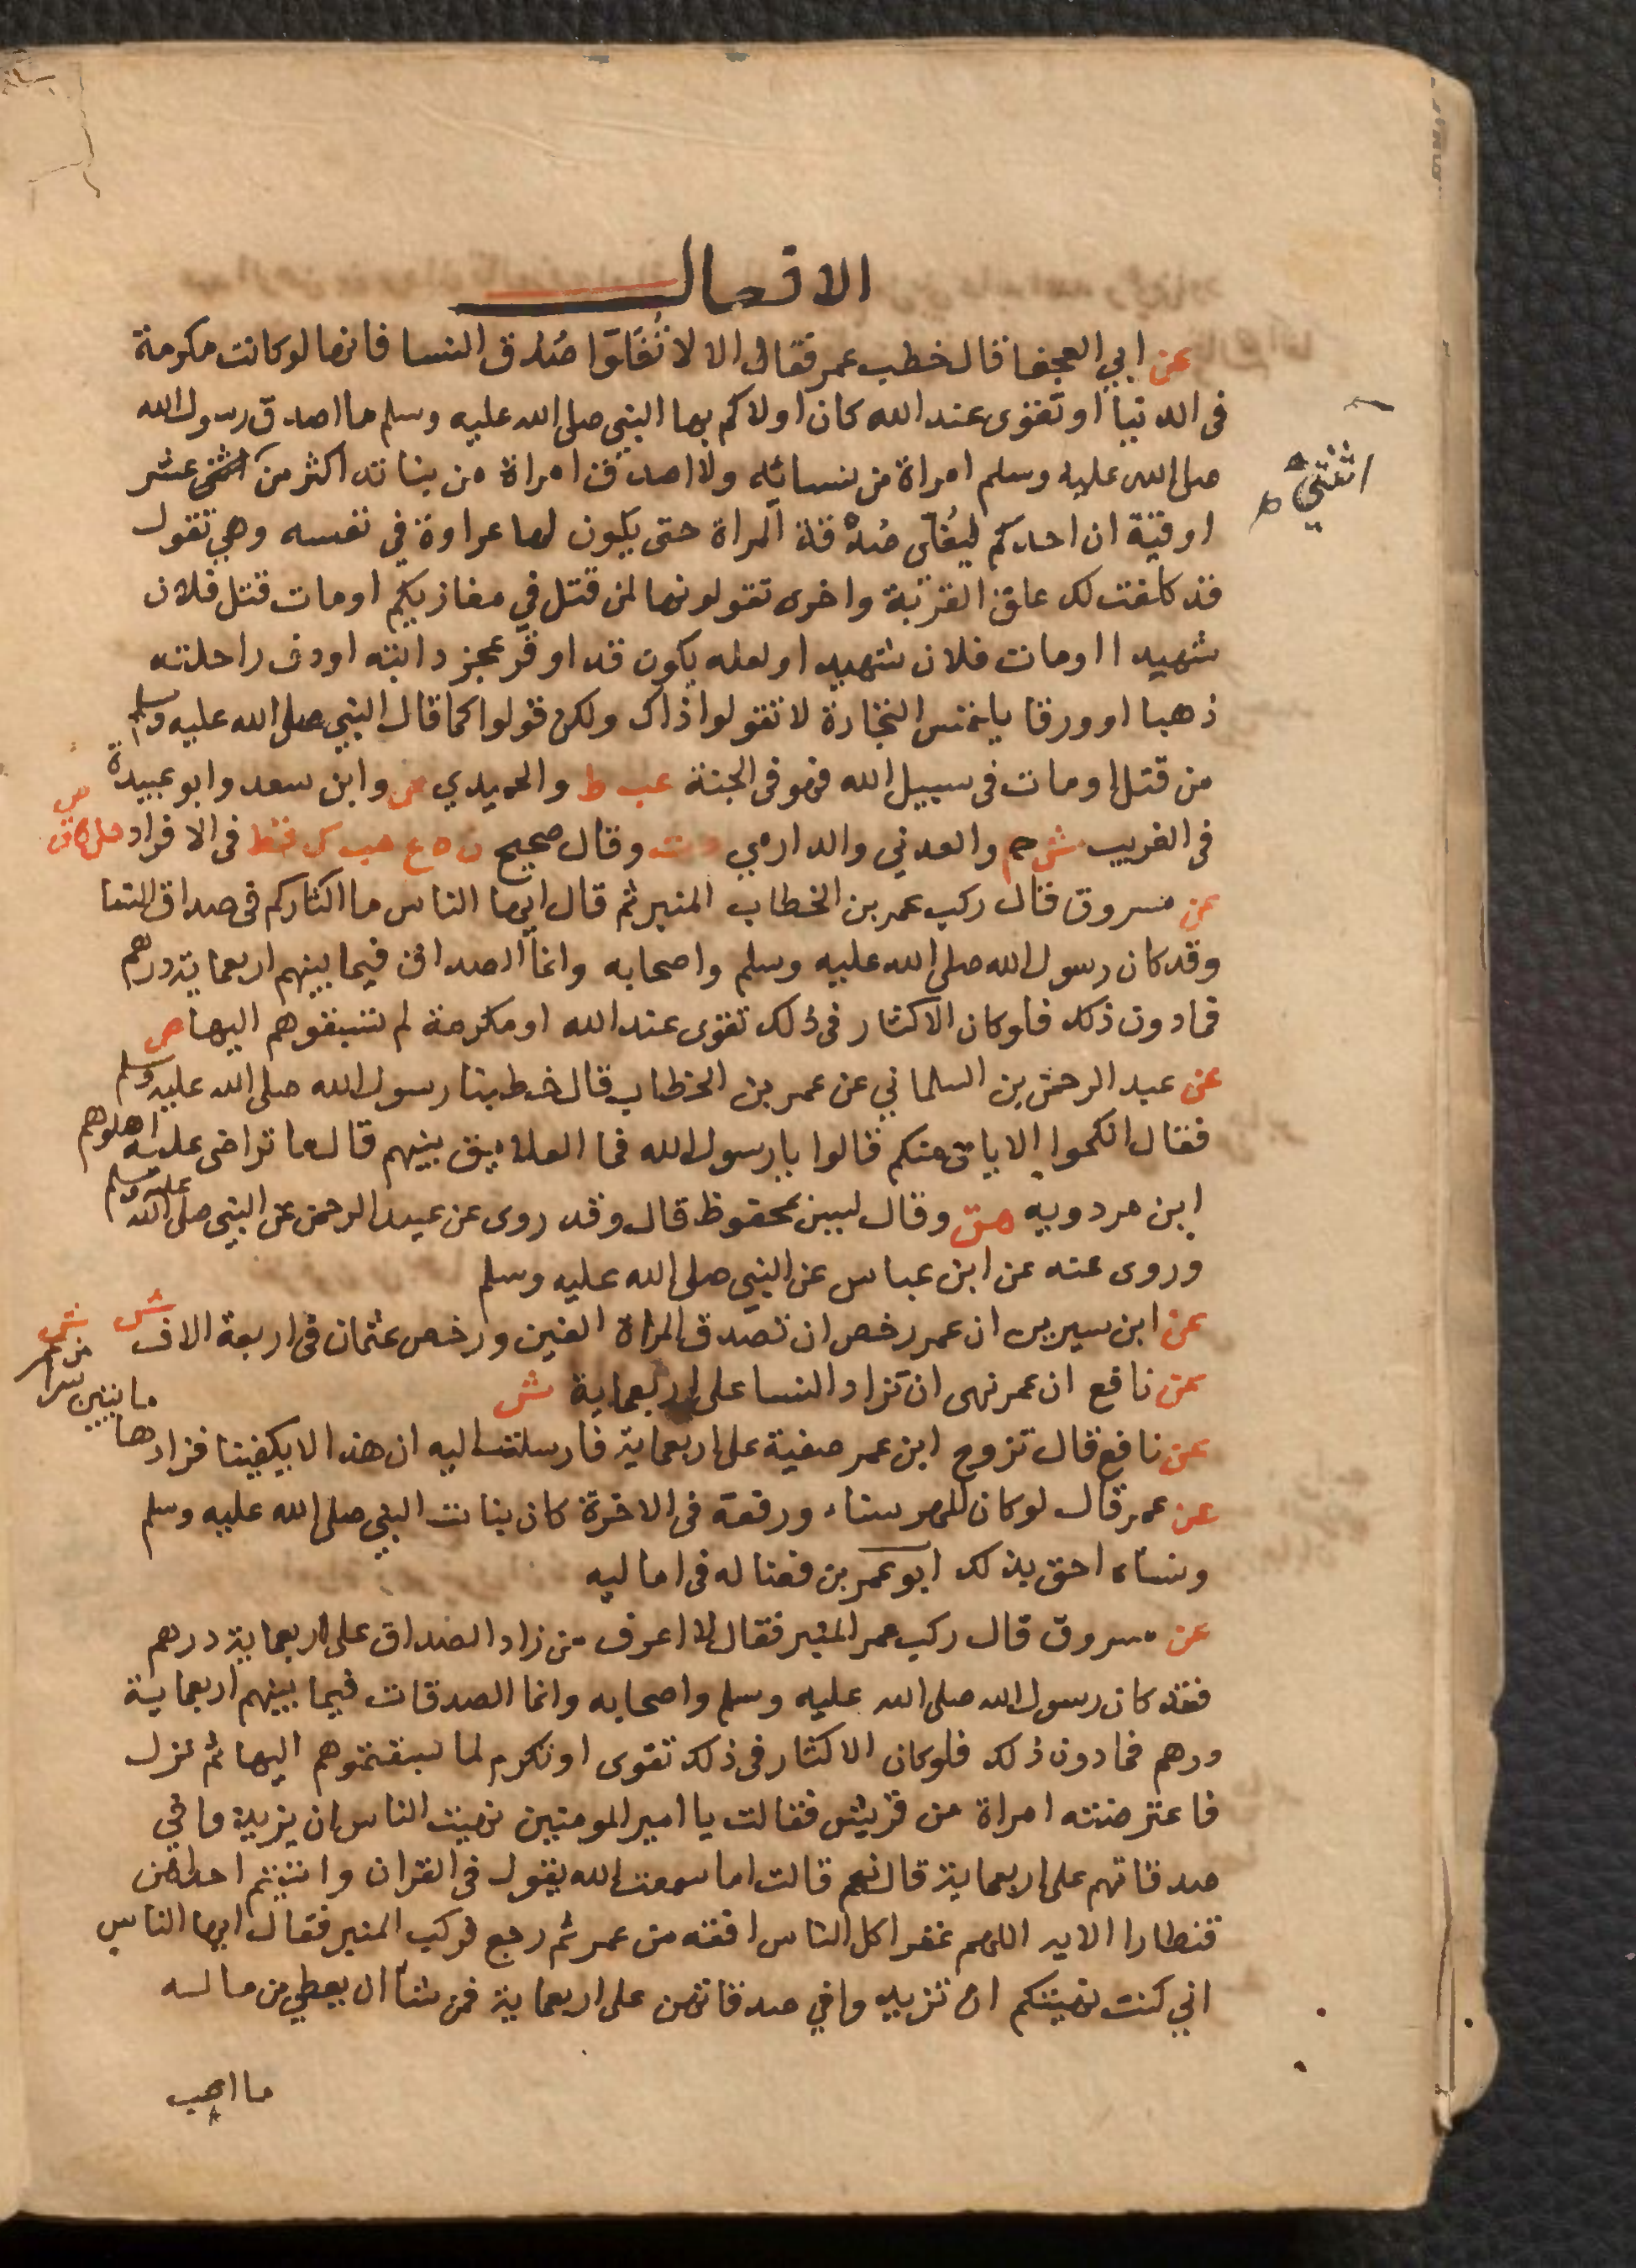 الافعال
عن ابي العجفا قال خطب عمر فقال الا لا تُغَالَوا صُدُق النسا فانها لو كانت مكرمة
فى الدنيا او تقوى عند الله كان اولاكم بها النبي صلى الله عليه وسلم ما اصدق رسول الله
صلى الله عليه وسلم امراة من نسائه ولا اصدقت امراة من بناته اكثر من اثنتي عشر
اثنتي
اوقية ان احدكم ليُغالى صُدُقة المراة حتى يكون لها عداوة في نفسه وهي تقول
قد كلفت لك علق القربة واخرى تقولونها لمن قتل في مغازيكم او مات قتل فلان
شهيدا او مات فلان شهيدا ولعله يكون قد اوقر عجز دابته او دف راحلته
ذهبا او ورقا يلتمس التجارة لا تقولوا ذاك ولكن قولوا كما قال النبي صلى الله عليه وسلم
من قتل او مات فى سبيل الله فهو فى الجنة عب ط والحميدي ص وابن سعد وابو عبيدة
فى الغريب ش حم والعدني والدارمي د ت وقال صحيح ن ه ع حب ك قط فى الافراد حل ق ض
عن مسروق قال ركب عمر بن الخطاب المنبر ثم قال ايها الناس ما اكثاركم فى صداق النسا
وقد كان رسول الله صلى الله عليه وسلم واصحابه وانما الصداق فيما بينهم اربعماية درهم
فما دون ذلك فلو كان الاكثار فى ذلك تقوى عند الله او مكرمة لم تسبقوهم اليها ص
عن عبد الرحمن بن السلماني عن عمر بن الخطاب قال خطبنا رسول الله صلى الله عليه وسلم
فقال انكحوا الايامى منكم قالوا يا رسول الله فما العلايق بينهم قال ما تراضى عليه اهلوهم
ابن مردويه هق وقال ليس بمحفوظ قال وقد روى عن عبد الرحمن عن النبي صلى الله عليه وسلم
وروى عنه عن ابن عباس عن النبي صلى الله عليه وسلم
عن ابن سيرين ان عمر رخص ان تصدق المراة الفين ورخص عثمان فى اربعة الاف ش
عن نافع ان عمر نهى ان تزاد النسا على اربعماية ش
عن نافع قال تزوج ابن عمر صفية على اربعماية فارسلت اليه ان هذا لا يكفينا فزادها مايتين سرا من عمر ش
عن عمر قال لو كان للمهر سناء ورفعة فى الاخرة كان بنات النبي صلى الله عليه وسلم
ونساه احق بذلك ابو عمر بن فضاله فى اماليه
عن مسروق قال ركب عمر المنبر فقال لا اعرف من زاد الصداق على اربعماية درهم
فقد كان رسول الله صلى الله عليه وسلم واصحابه وانما الصدقات فيما بينهم اربعماية
درهم فما دون ذلك فلو كان الاكثار فى ذلك تقوى او تكرم لما سبقتموهم اليها ثم نزل
فاعترضته امراة من قريش فقالت يا امير المومنين نهيت الناس ان يزيدوا في
صدقاتهم على اربعماية قال نعم قالت اما سمعت الله يقول فى القران واتيتم احداهن
قنطارا الايه اللهم غفرا كل الناس افقه من عمر ثم رجع فركب المنبر فقال ايها الناس
اني كنت نهيتكم ان تزيدوا في صدقاتهن على اربعماية فمن شا ان يعطي من ماله
ما احب